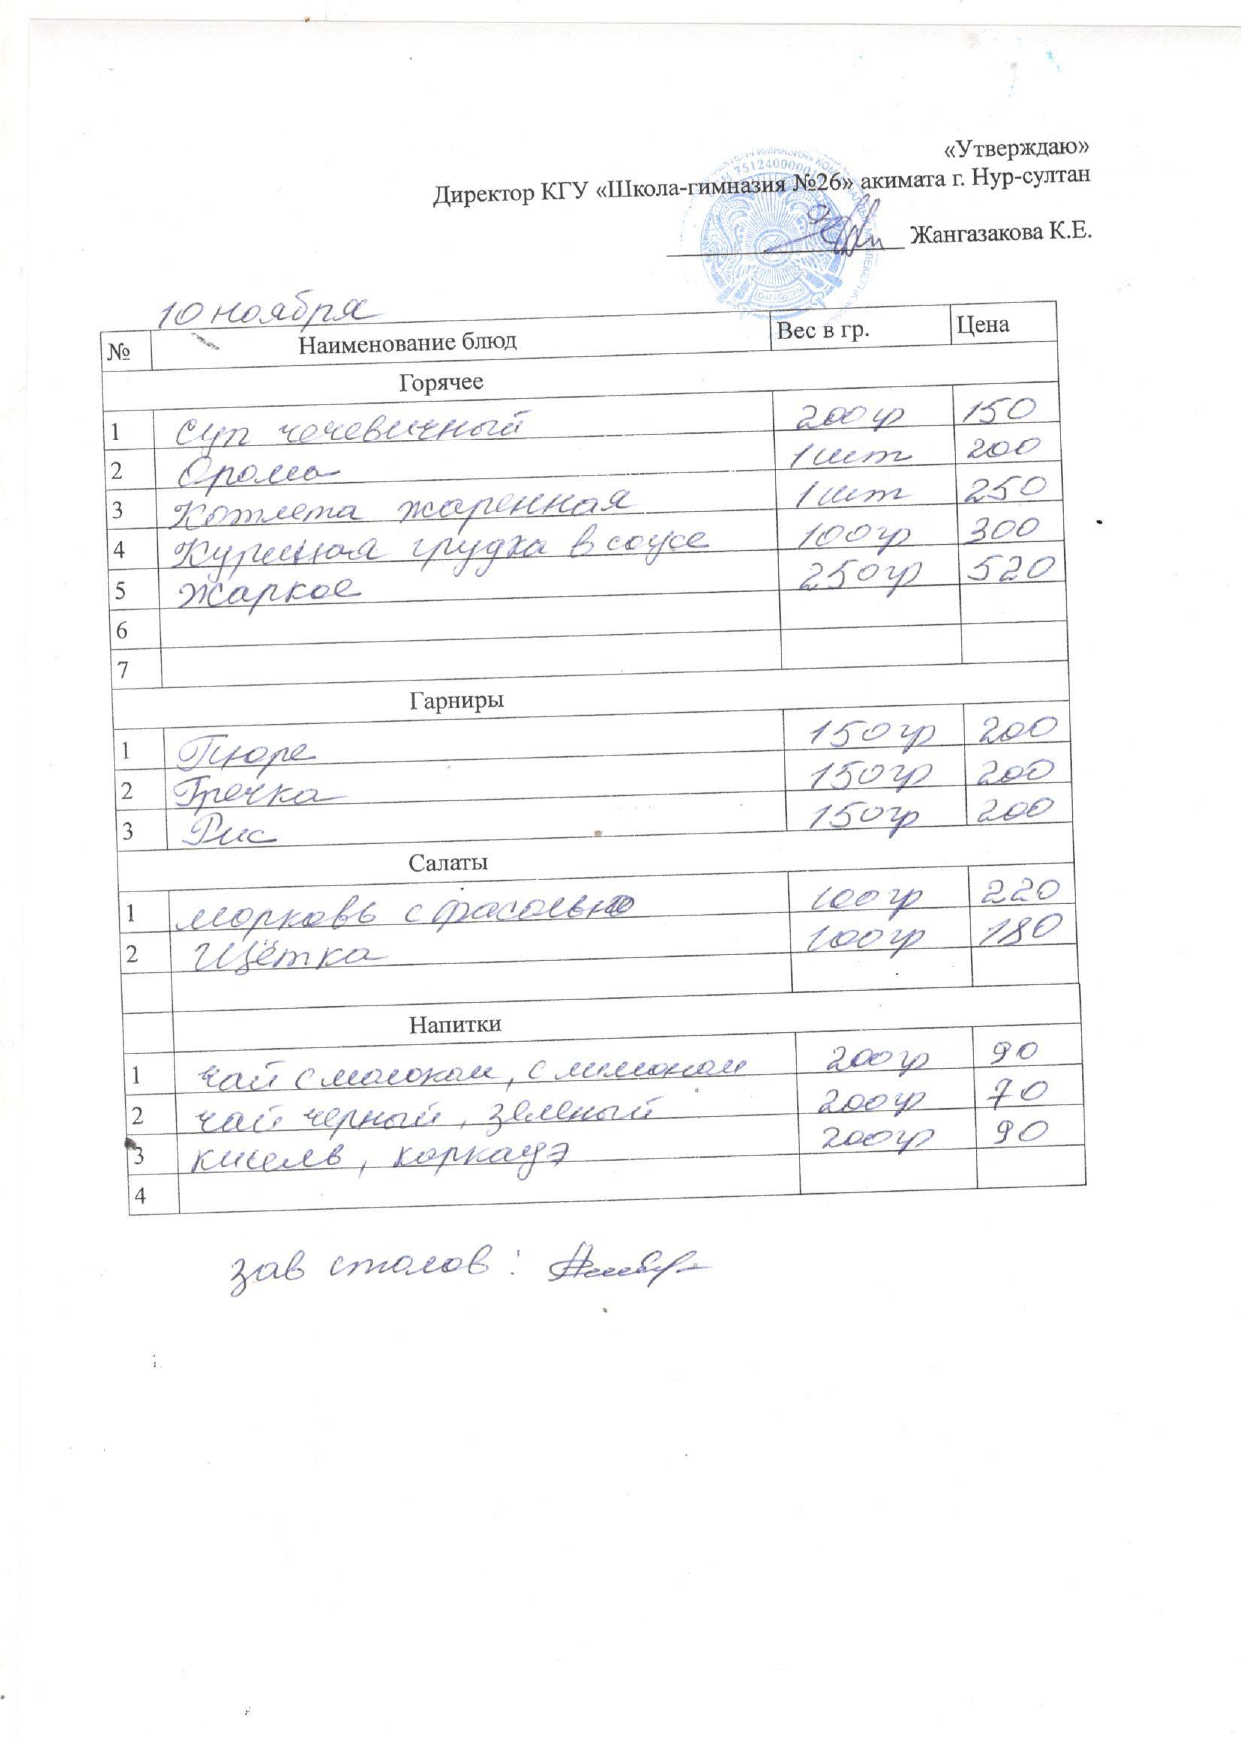 «Утверждаю»
Директор КГУ «Школа-гимназия №26» акимата г. Нур-султан
Жангазакова К.Е.
10 ноября
№ Наименование блюд Вес в гр. Цена
Горячее
1 Суп чечевичный 200гр 150
2 Оромо 1 шт 200
3 Котлета жаренная 1 шт 250
4 Куриная грудка в соусе 100гр 300
5 Жаркое 250гр 520
6
7
Гарниры
1 Пюре 150гр 200
2 Гречка 150гр 200
3 Рис 150гр 200
Салаты
1 морковь с фасолью 100гр 220
2 Щётка 100гр 180
Напитки
1 чай с молоком, с лимоном 200гр 90
2 чай черный, зеленый 200гр 70
3 кисель, каркадэ 200гр 90
4
зав столов: